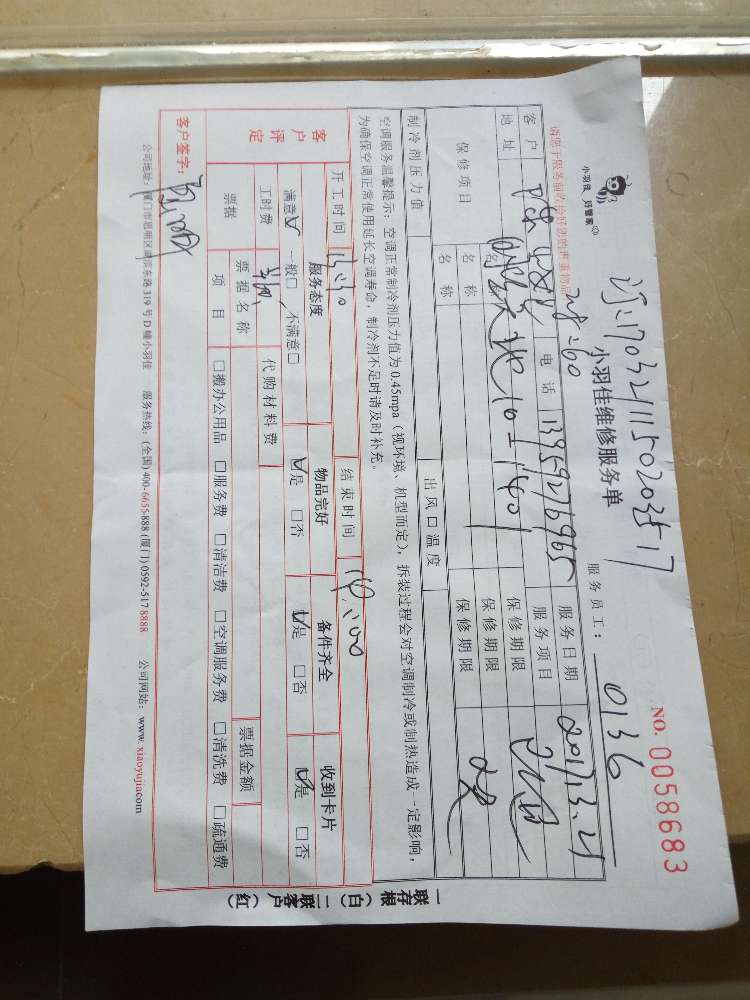 小羽佳 好管家
小羽佳维修服务单
NO. 0058683
服务员工: 0136
请您于服务前收拾好您的贵重物品
客户 电话 13959276965 服务日期
地址 服务项目
保修项目 名称 保修期限
名称 保修期限
名称 保修期限
制冷剂压力值 出风口温度
空调服务温馨提示: 空调正常制冷剂压力值为0.45mpa(视环境、机型而定), 拆装过程会对空调制冷或制热造成一定影响,
为确保空调正常使用延长空调寿命, 制冷剂不足时请及时补充。
开工时间 结束时间
客户评定 服务态度 物品完好 备件齐全 收到卡片
满意☑ 一般□ 不满意□ ☑是 □否 ☑是 □否 ☑是 □否
工时费 代购材料费
票据 票据名称 票据金额
项目 □搬办公用品 □服务费 □清洁费 □空调服务费 □清洗费 □疏通费
客户签字:
公司地址: 厦门市思明区湖滨东路319号D幢小羽佳 服务热线: (全国)400-6655-888 (厦门)0592-517 8888 公司网站: www.xiaoyujia.com
一联存根(白) 二联客户(红)